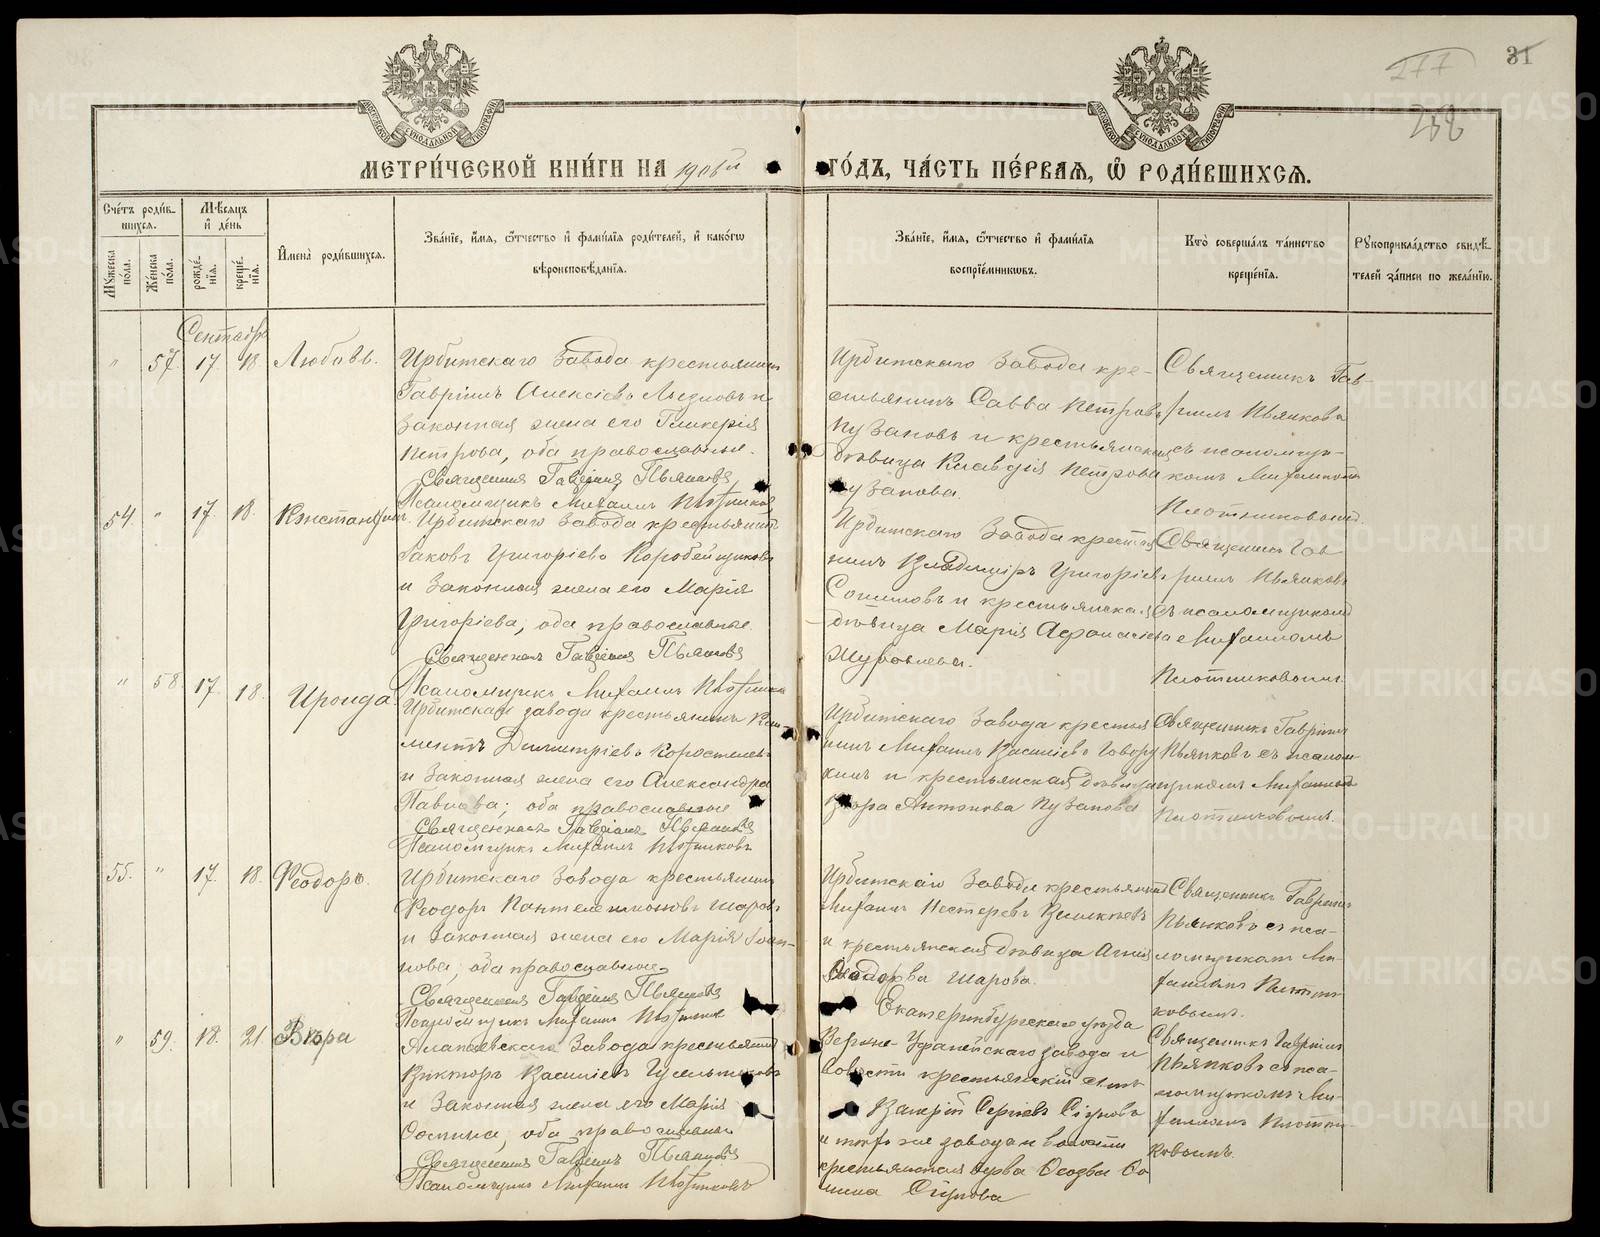 277
31
232
МОСКОВСКОЙ СѴНОДАЛЬНОЙ ТИПОГРАФІИ
МОСКОВСКОЙ СѴНОДАЛЬНОЙ ТИПОГРАФІИ
МЕТРИ́ЧЕСКОЙ КНИ́ГИ НА 1906й ГО́ДЪ, ЧА́СТЬ ПЕ́РВАѦ, Ѽ РОДИ́ВШИХСѦ.
Сче́тъ роди́в-
шихсѧ.
Мꙋ́жеска по́ла.
Же́нска по́ла.
Мѣ́сѧцъ
и҆ де́нь
рожде́нїѧ.
креще́нїѧ.
И҆мена̀ роди́вшихсѧ.
Зва́нїе, и҆́мѧ, ѻ҆́тчество и҆ фами́лїѧ роди́телей, и҆ како́гѡ
вѣроисповѣ́данїѧ.
Зва́нїе, и҆́мѧ, ѻ҆́тчество и҆ фами́лїѧ
воспрїе́мникѡвъ.
Кто̀ соверша́лъ та́инство
креще́нїѧ.
Рꙋкоприкла́дство свидѣ́-
телей за́писи по жела́нїю.
Сентябрь
" 57. 17. 18 Любовь.
Ирбитскаго Завода крестьянинъ
Гавріилъ Алексіевъ и
законная жена его Гликерія
Петрова, оба православные.
Священникъ Гавріилъ Пьянковъ
Псаломщикъ Михаилъ Плотниковъ
Ирбитскаго Завода кре-
стьянинъ Савва Петровъ
Пузановъ и крестьянская
дѣвица Клавдія Петрова
Пузанова.
Священникъ Гав-
ріилъ Пьянковъ
съ псаломщи-
комъ Михаиломъ
Плотниковымъ.
54. " 17. 18. Константинъ.
Ирбитскаго Завода крестьянинъ
Іаковъ Григоріевъ Коробейщиковъ
и Законная жена его Марія
Григоріева, оба православные.
Священникъ Гавріилъ Пьянковъ
Псаломщикъ Михаилъ Плотниковъ
Ирбитскаго Завода крестья
нинъ Владиміръ Григоріевъ
и крестьянская
дѣвица Марія Афанасіева
Журавлева.
Священникъ Гав
ріилъ Пьянковъ
съ псаломщикомъ
Михаиломъ
Плотниковымъ.
" 58 17. 18. Ироида.
Ирбитскаго завода крестьянинъ Кли-
ментъ Димитріевъ Коростелевъ
и Законная жена его Александра
Павлова; оба православные
Священникъ Гавріилъ Пьянковъ
Псаломщикъ Михаилъ Плотниковъ
Ирбитскаго Завода крестья
нинъ Михаилъ Василіевъ Говору
хинъ и крестьянская дѣвица
Вѣра Антонова Пузанова
Священникъ Гавріилъ
Пьянковъ съ псалом-
щикомъ Михаиломъ
Плотниковымъ.
55. " 17. 18. Ѳеодоръ.
Ирбитскаго Завода крестьянинъ
Ѳеодоръ Пантелеимоновъ Шаровъ
и Законная жена его Марія Іоан-
нова, оба православные.
Священникъ Гавріилъ Пьянковъ
Псаломщикъ Михаилъ Плотниковъ
Ирбитскаго Завода крестьянинъ
Михаилъ Нестеровъ
и крестьянская дѣвица Агнія
Ѳеодорова Шарова.
Священникъ Гавріилъ
Пьянковъ съ пса-
ломщикомъ Ми-
хаиломъ Плотни-
ковымъ.
" 59. 18. 21. Вѣра
Алапаевскаго Завода крестьянинъ
Викторъ Василіевъ
и Законная жена его Марія
Фомина, оба православные
Священникъ Гавріилъ Пьянковъ
Псаломщикъ Михаилъ Плотниковъ
Екатеринбургскаго уѣзда
Верхне Уфалейскаго завода и
волости крестьянскій сынъ
Валерій Сергіевъ
и того же завода и волости
крестьянская
Священникъ Гавріилъ
Пьянковъ съ пса-
ломщикомъ Ми-
хаиломъ Плотни-
ковымъ.
METRIKI.GASO-URAL.RU